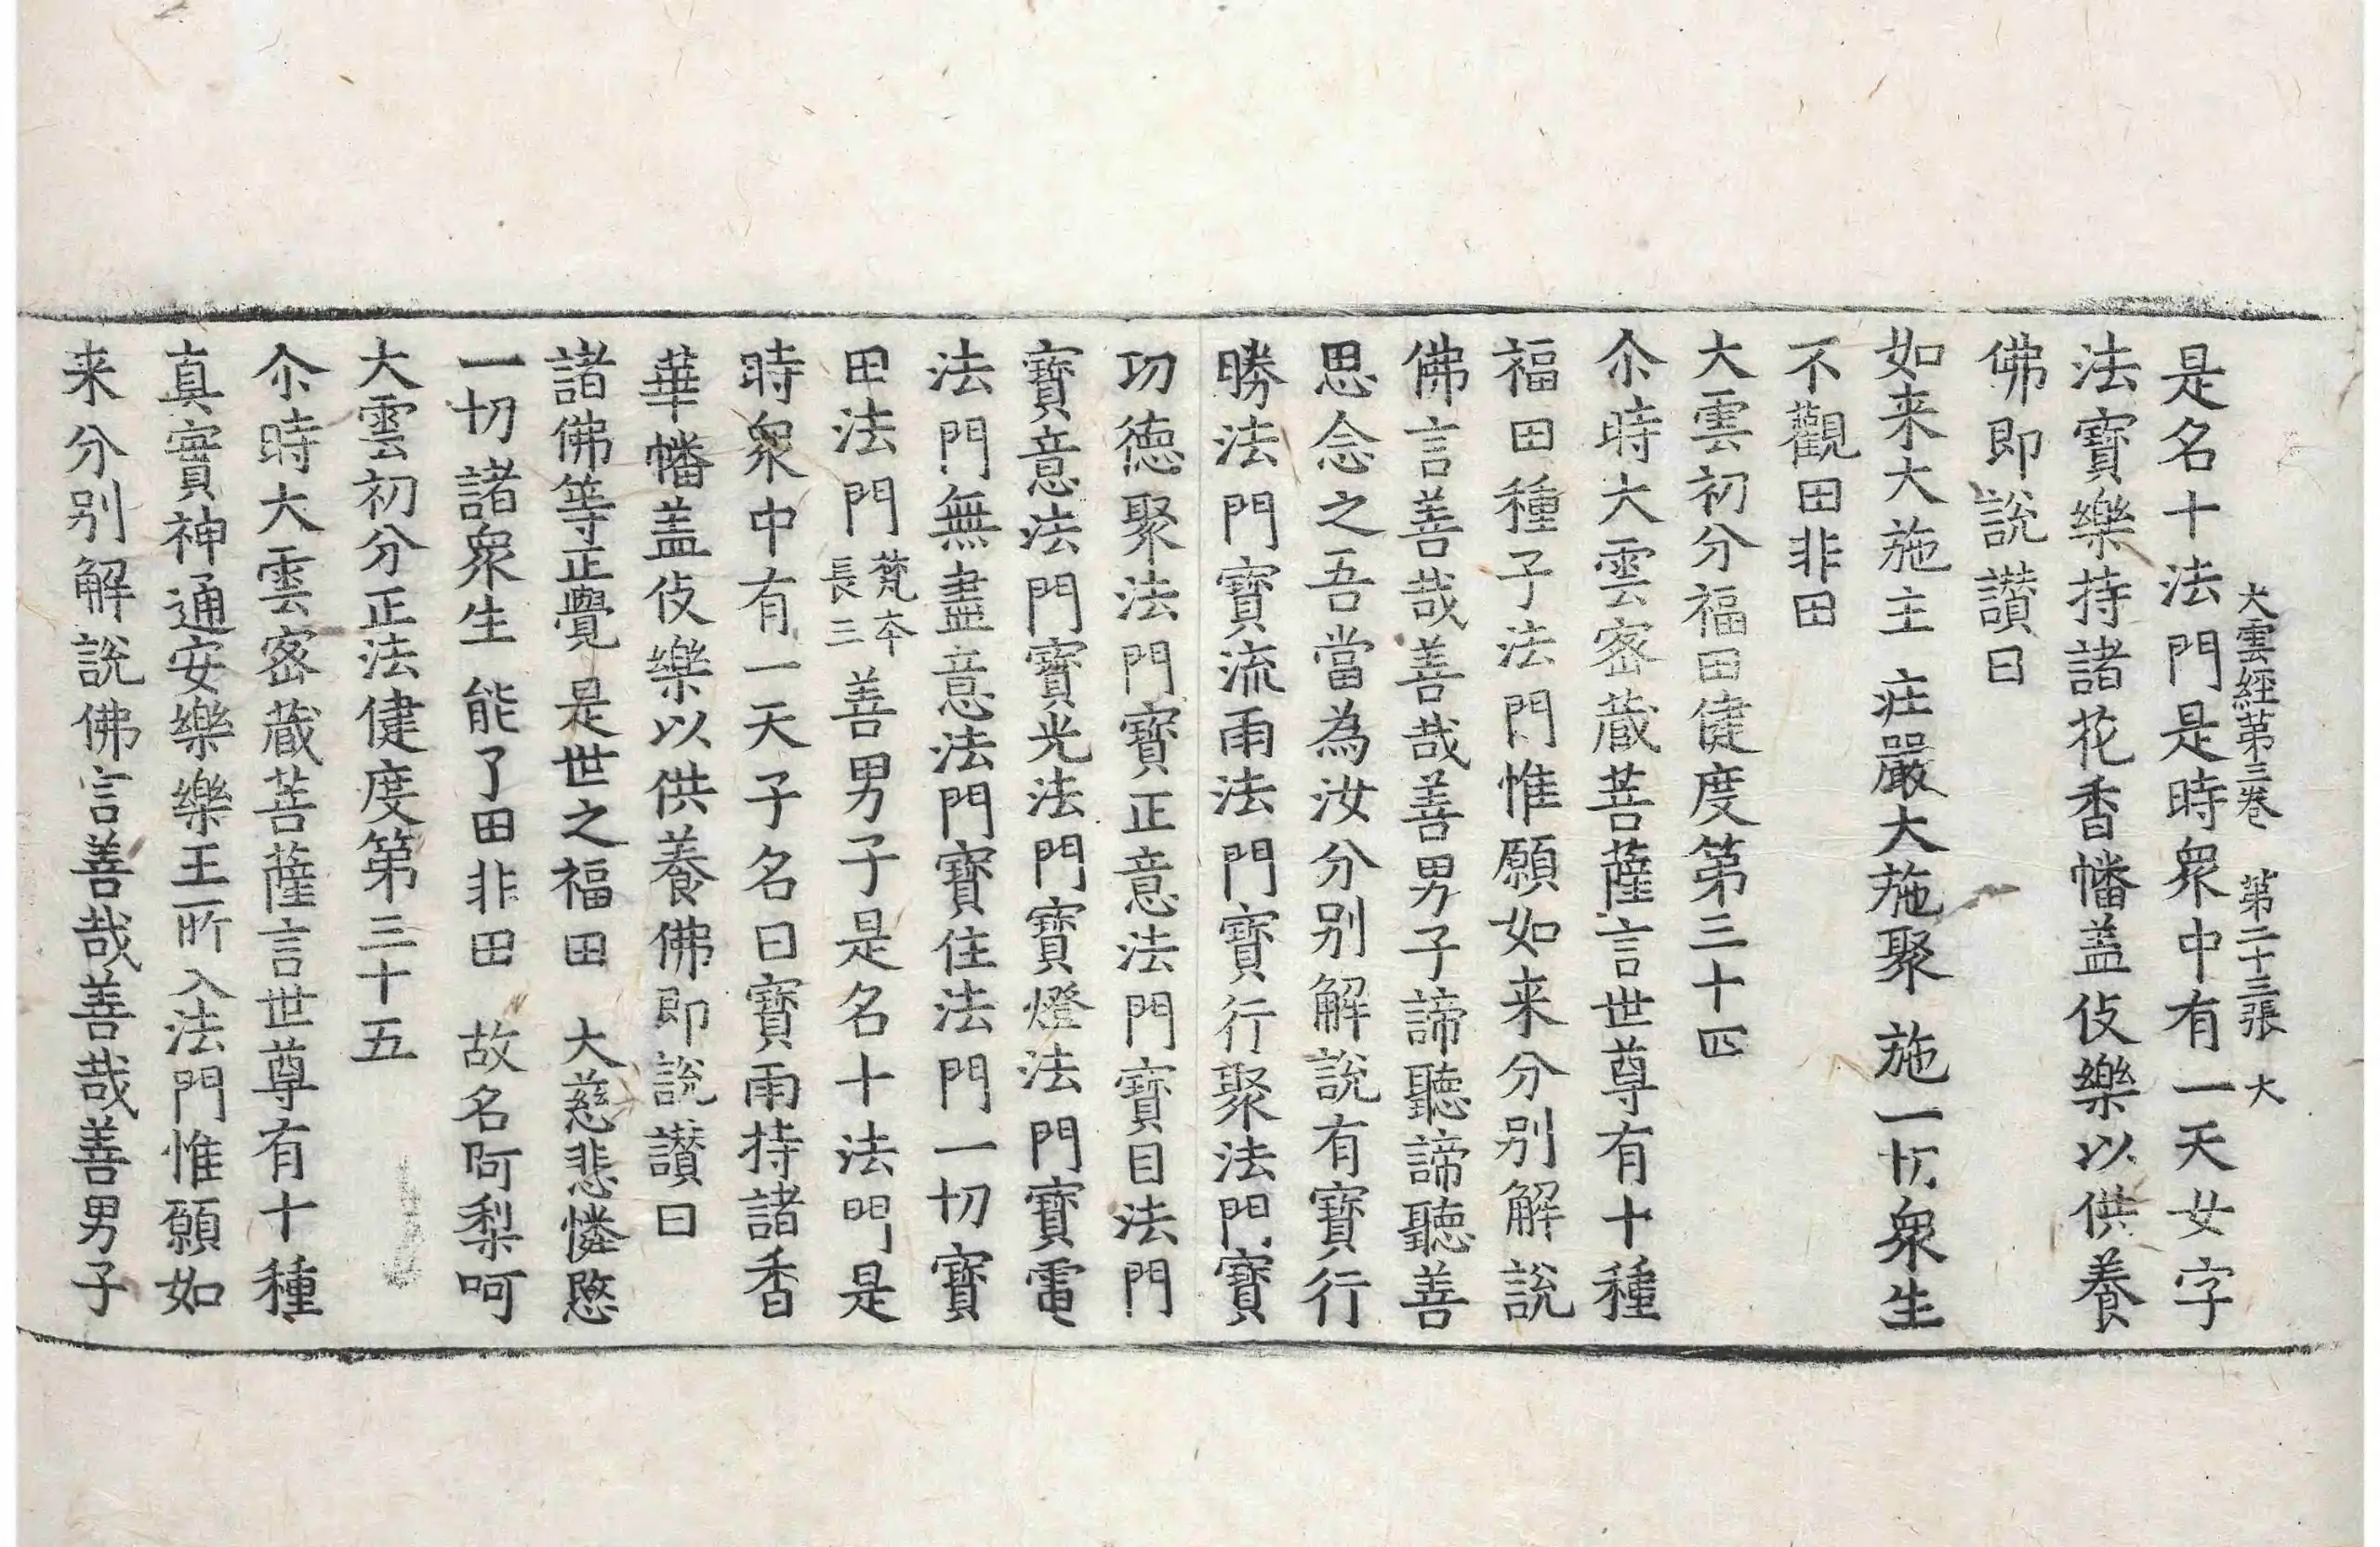 大雲經第三巻　第二十三張　大
是名十法門是時衆中有一天女字
法寶樂持諸花香幡盖伎樂以供養
佛即説讃曰
如来大施主　莊嚴大施聚　施一切衆生
不觀田非田
大雲初分福田健度第三十四
尒時大雲宻蔵菩薩言世尊有十種
福田種子法門惟願如来分别解説
佛言善哉善哉善男子諦聽諦聽善
思念之吾當為汝分别解説有寶行
勝法門寶流雨法門寶行聚法門寶
功徳聚法門寶正意法門寶目法門
寶意法門寶光法門寶燈法門寶電
法門無盡意法門寶住法門一切寶
田法門梵夲長三善男子是名十法門是
時衆中有一天子名曰寶雨持諸香
華幡盖伎樂以供養佛即説讃曰
諸佛等正覺　是世之福田　大慈悲憐愍
一切諸衆生　能了田非田　故名阿梨呵
大雲初分正法健度第三十五
尒時大雲宻蔵菩薩言世尊有十種
真實神通安樂樂王所入法門惟願如
来分别解説佛言善哉善哉善男子